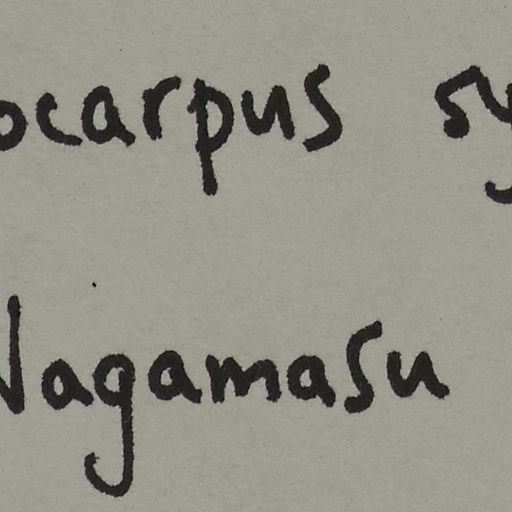 ocarpus sy
Nagamasu